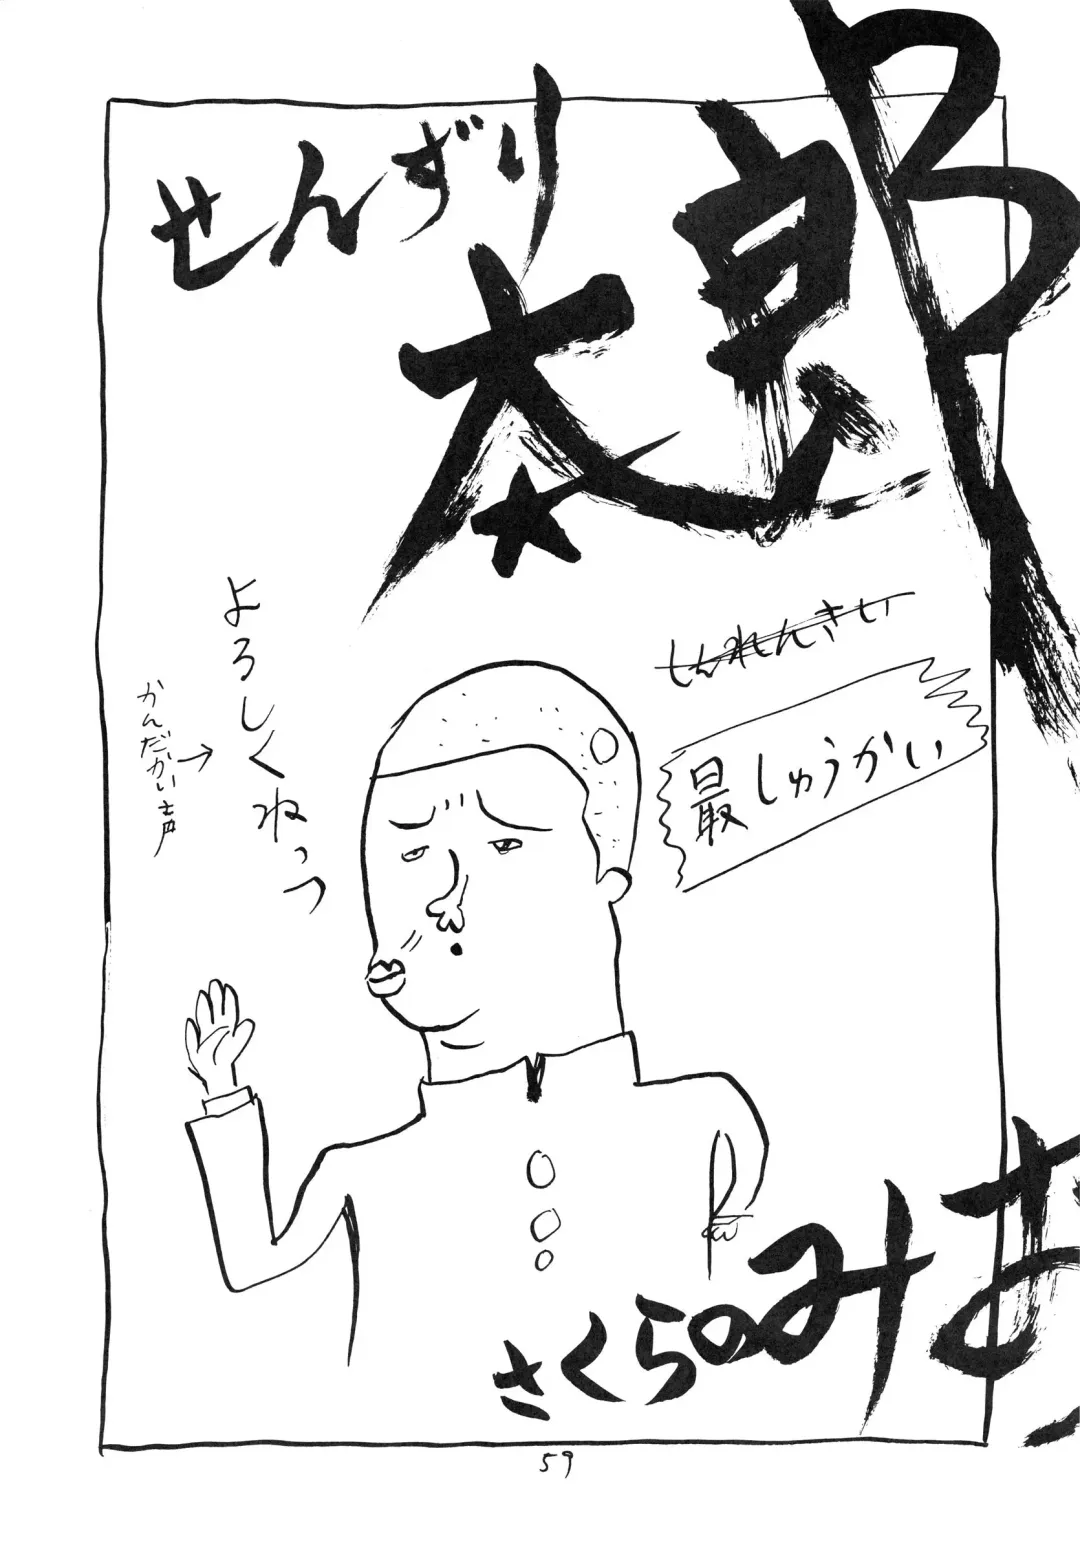 せんずり
太郎
しんれんさい
最しゅうかい
よろしくねっっ
かんだかい声
→
さくらのみ
59